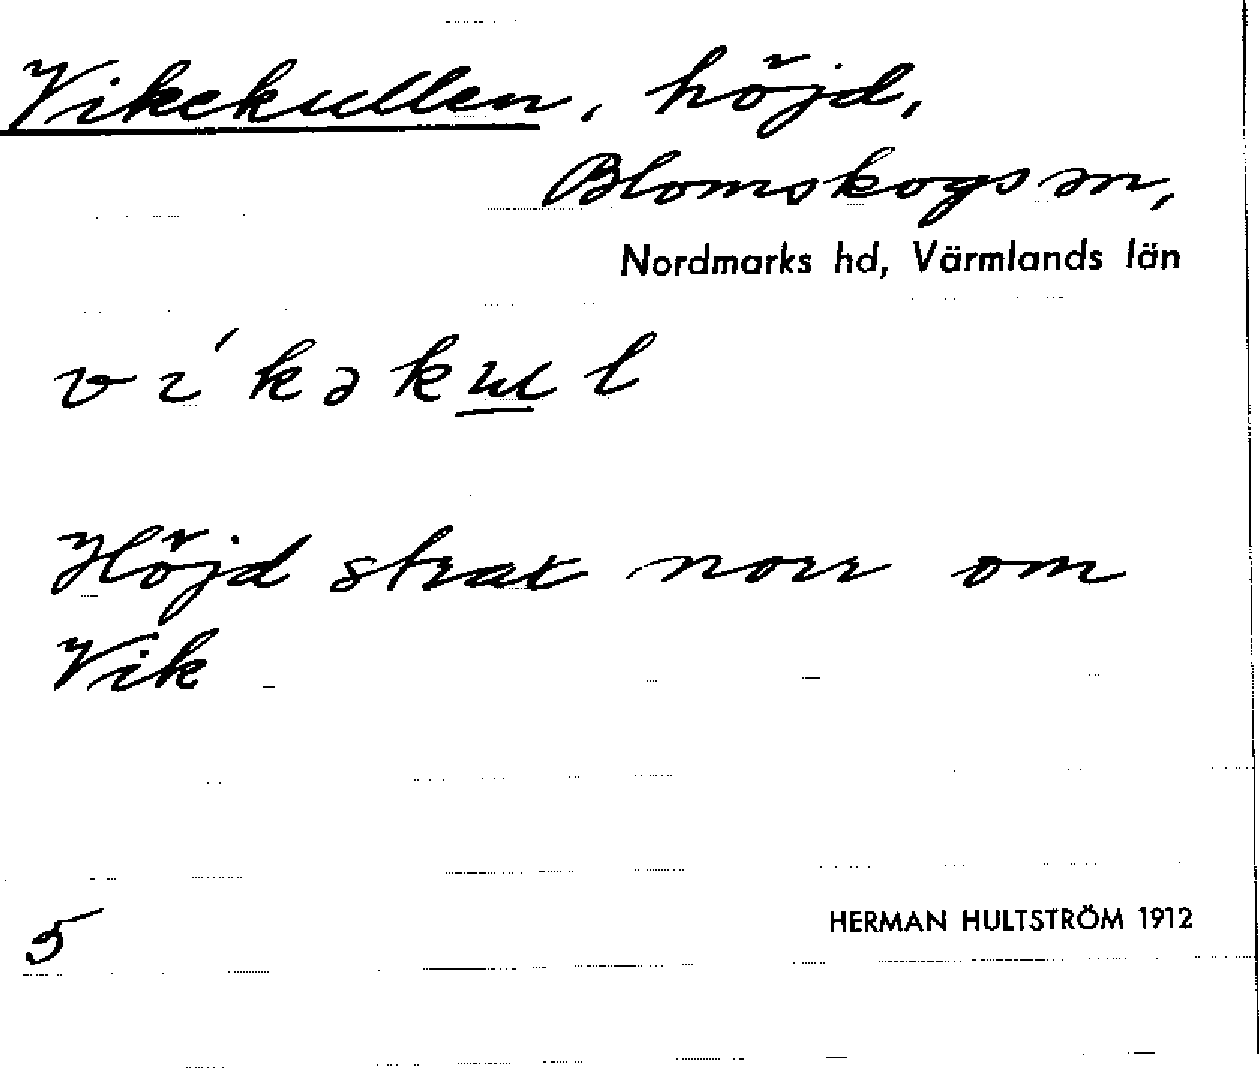 Vikekullen, höjd,
Blomskogs sn,
Nordmarks hd, Värmlands län
vi´kəkul l
Höjd strax norr om
Vik
5
HERMAN HULTSTRÖM 1912